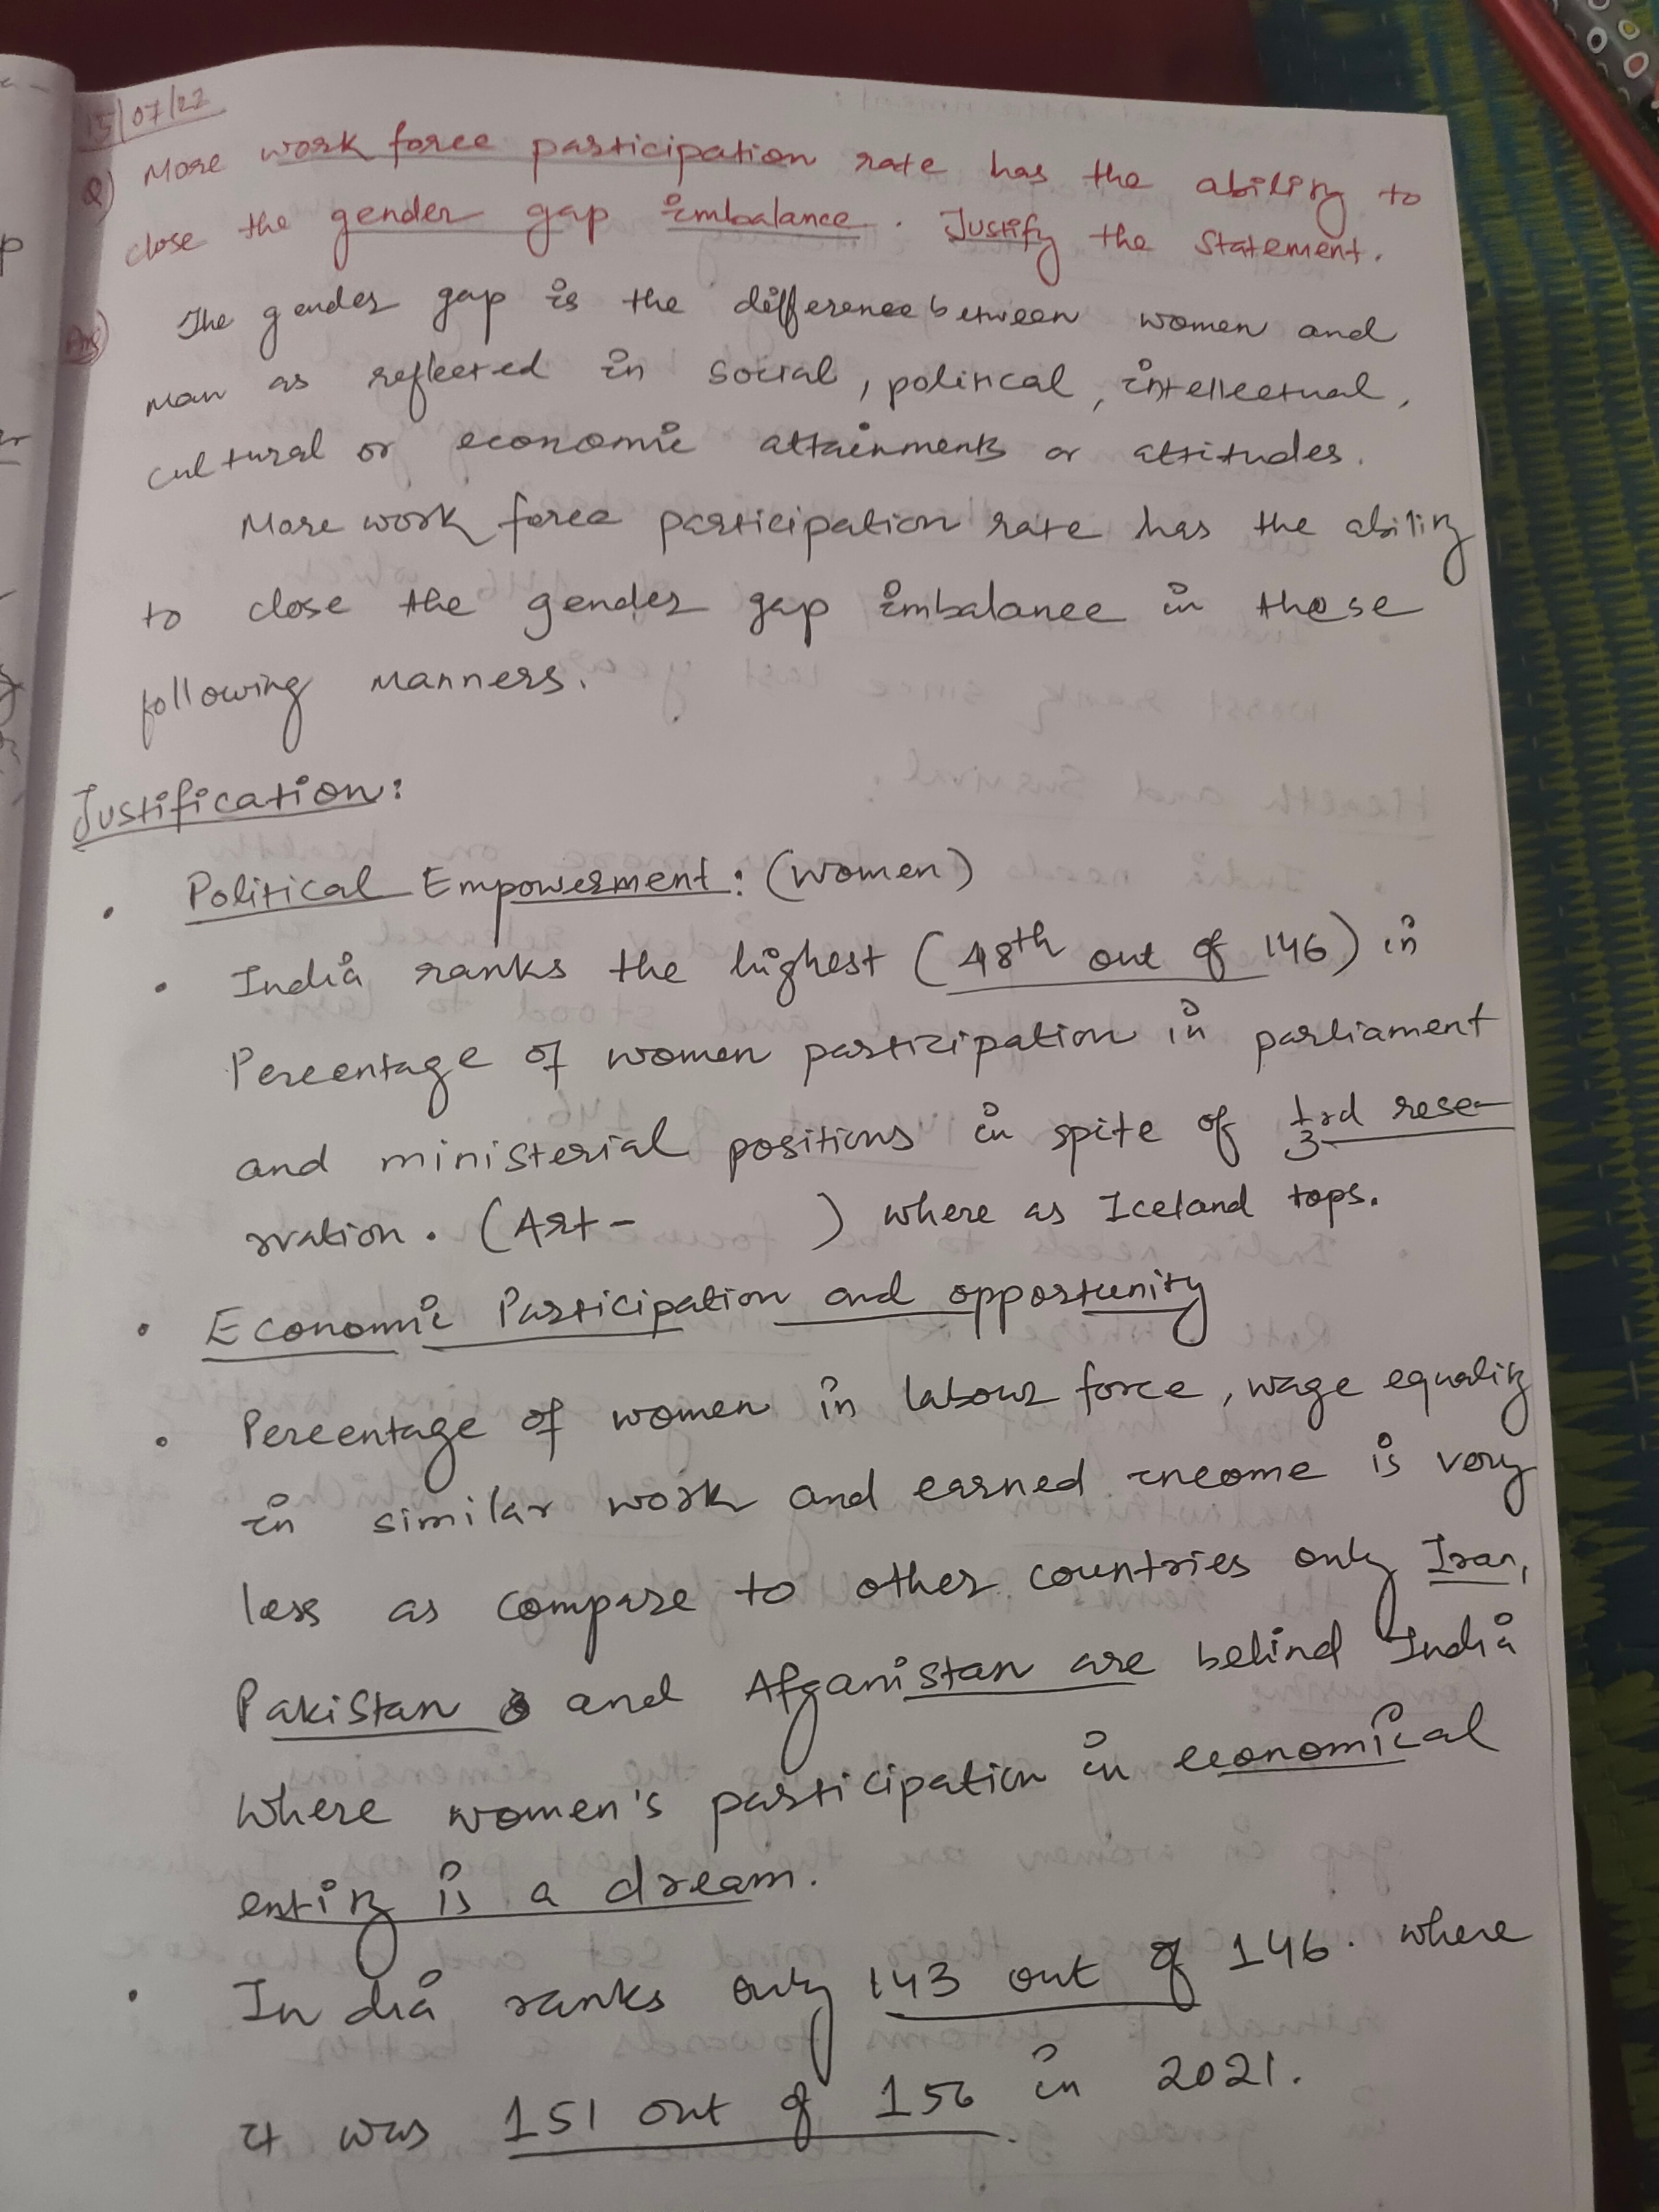 15/07/22
Q) More work force participation rate has the ability to
close the gender gap imbalance. Justify the Statement.
Ans) The gender gap is the difference between women and
man as reflected in social, political, intellectual,
cultural or economic attainments or attitudes.
More work force participation rate has the ability
to close the gender gap imbalance in these
following manners.
Justification:
• Political Empowerment: (women)
• India ranks the highest (48th out of 146) in
Percentage of women participation in parliament
and ministerial positions in spite of 1/3rd rese-
rvation. (Art- ) where as Iceland tops.
• Economic Participation and opportunity
• Percentage of women in labour force, wage equality
in similar work and earned income is very
less as compare to other countries only Iran,
Pakistan and Afganistan are behind India
where women's participation in economical
entity is a dream.
• India ranks only 143 out of 146. where
it was 151 out of 156 in 2021.